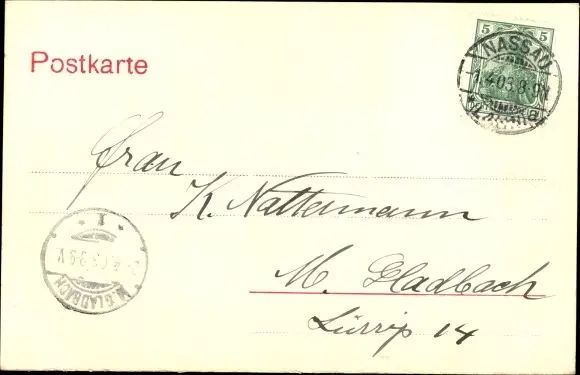 Postkarte
5 5
NASSAU
4.03.8-9N.
Frau
K. Nattermann
M. Gladbach
Lürrip 14
1
4.03.8-9V.
M. GLADBACH